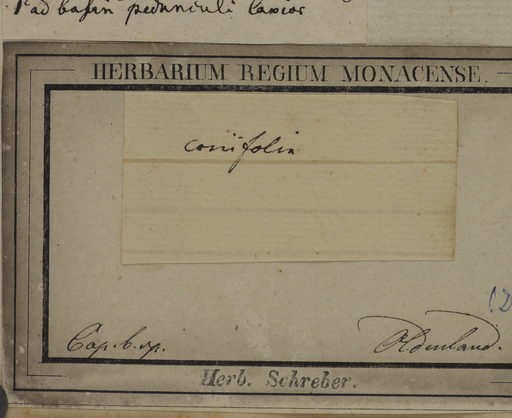 ad basin pedunculi laxior
HERBARIUM REGIUM MONACENSE.
conifolia
Cap. b. sp.
Oldenland.
Herb. Schreber.